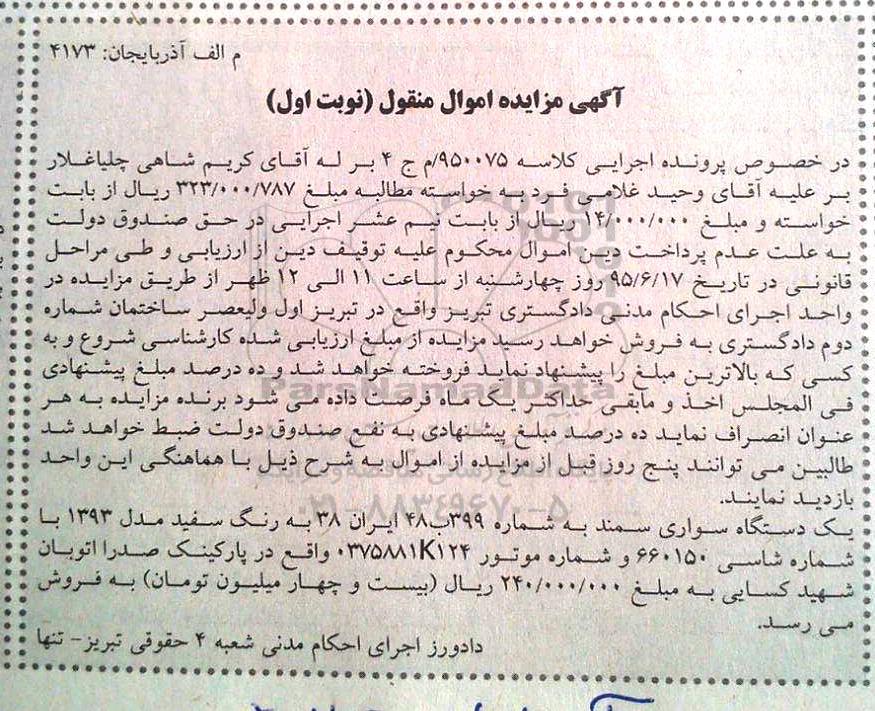 م الف آذربایجان: ۴۱۷۳
آگهی مزایده اموال منقول (نوبت اول)
در خصوص پرونده اجرایی کلاسه ۹۵۰۰۷۵/م ج ۴ بر له آقای کریم شاهی چلیاغلار
بر علیه آقای وحید غلامی فرد به خواسته مطالبه مبلغ ۳۲۳/۰۰۰/۷۸۷ ریال از بابت
خواسته و مبلغ ۱۴/۰۰۰/۰۰۰ ریال از بابت نیم عشر اجرایی در حق صندوق دولت
به علت عدم پرداخت دین اموال محکوم علیه توقیف دین از ارزیابی و طی مراحل
قانونی در تاریخ ۹۵/۶/۱۷ روز چهارشنبه از ساعت ۱۱ الی ۱۲ ظهر از طریق مزایده در
واحد اجرای احکام مدنی دادگستری تبریز واقع در تبریز اول ولیعصر ساختمان شماره
دوم دادگستری به فروش خواهد رسید مزایده از مبلغ ارزیابی شده کارشناسی شروع و به
کسی که بالاترین مبلغ را پیشنهاد نماید فروخته خواهد شد و ده درصد مبلغ پیشنهادی
ParsNamadData
فی المجلس اخذ و مابقی حداکثر یک ماه فرصت داده می شود برنده مزایده به هر
عنوان انصراف نماید ده درصد مبلغ پیشنهادی به نفع صندوق دولت ضبط خواهد شد
طالبین می توانند پنج روز قبل از مزایده از اموال به شرح ذیل با هماهنگی این واحد
بازدید نمایند.
۰۲۱-۸۸۳۴۹۶۷۰-۵
یک دستگاه سواری سمند به شماره ۳۹۹ب۴۸ ایران ۳۸ به رنگ سفید مدل ۱۳۹۳ با
شماره شاسی ۶۶۰۱۵۰ و شماره موتور ۰۳۷۵۸۸۱K۱۲۴ واقع در پارکینک صدرا اتوبان
شهید کسایی به مبلغ ۲۴۰/۰۰۰/۰۰۰ ریال (بیست و چهار میلیون تومان) به فروش
می رسد.
دادورز اجرای احکام مدنی شعبه ۴ حقوقی تبریز- تنها